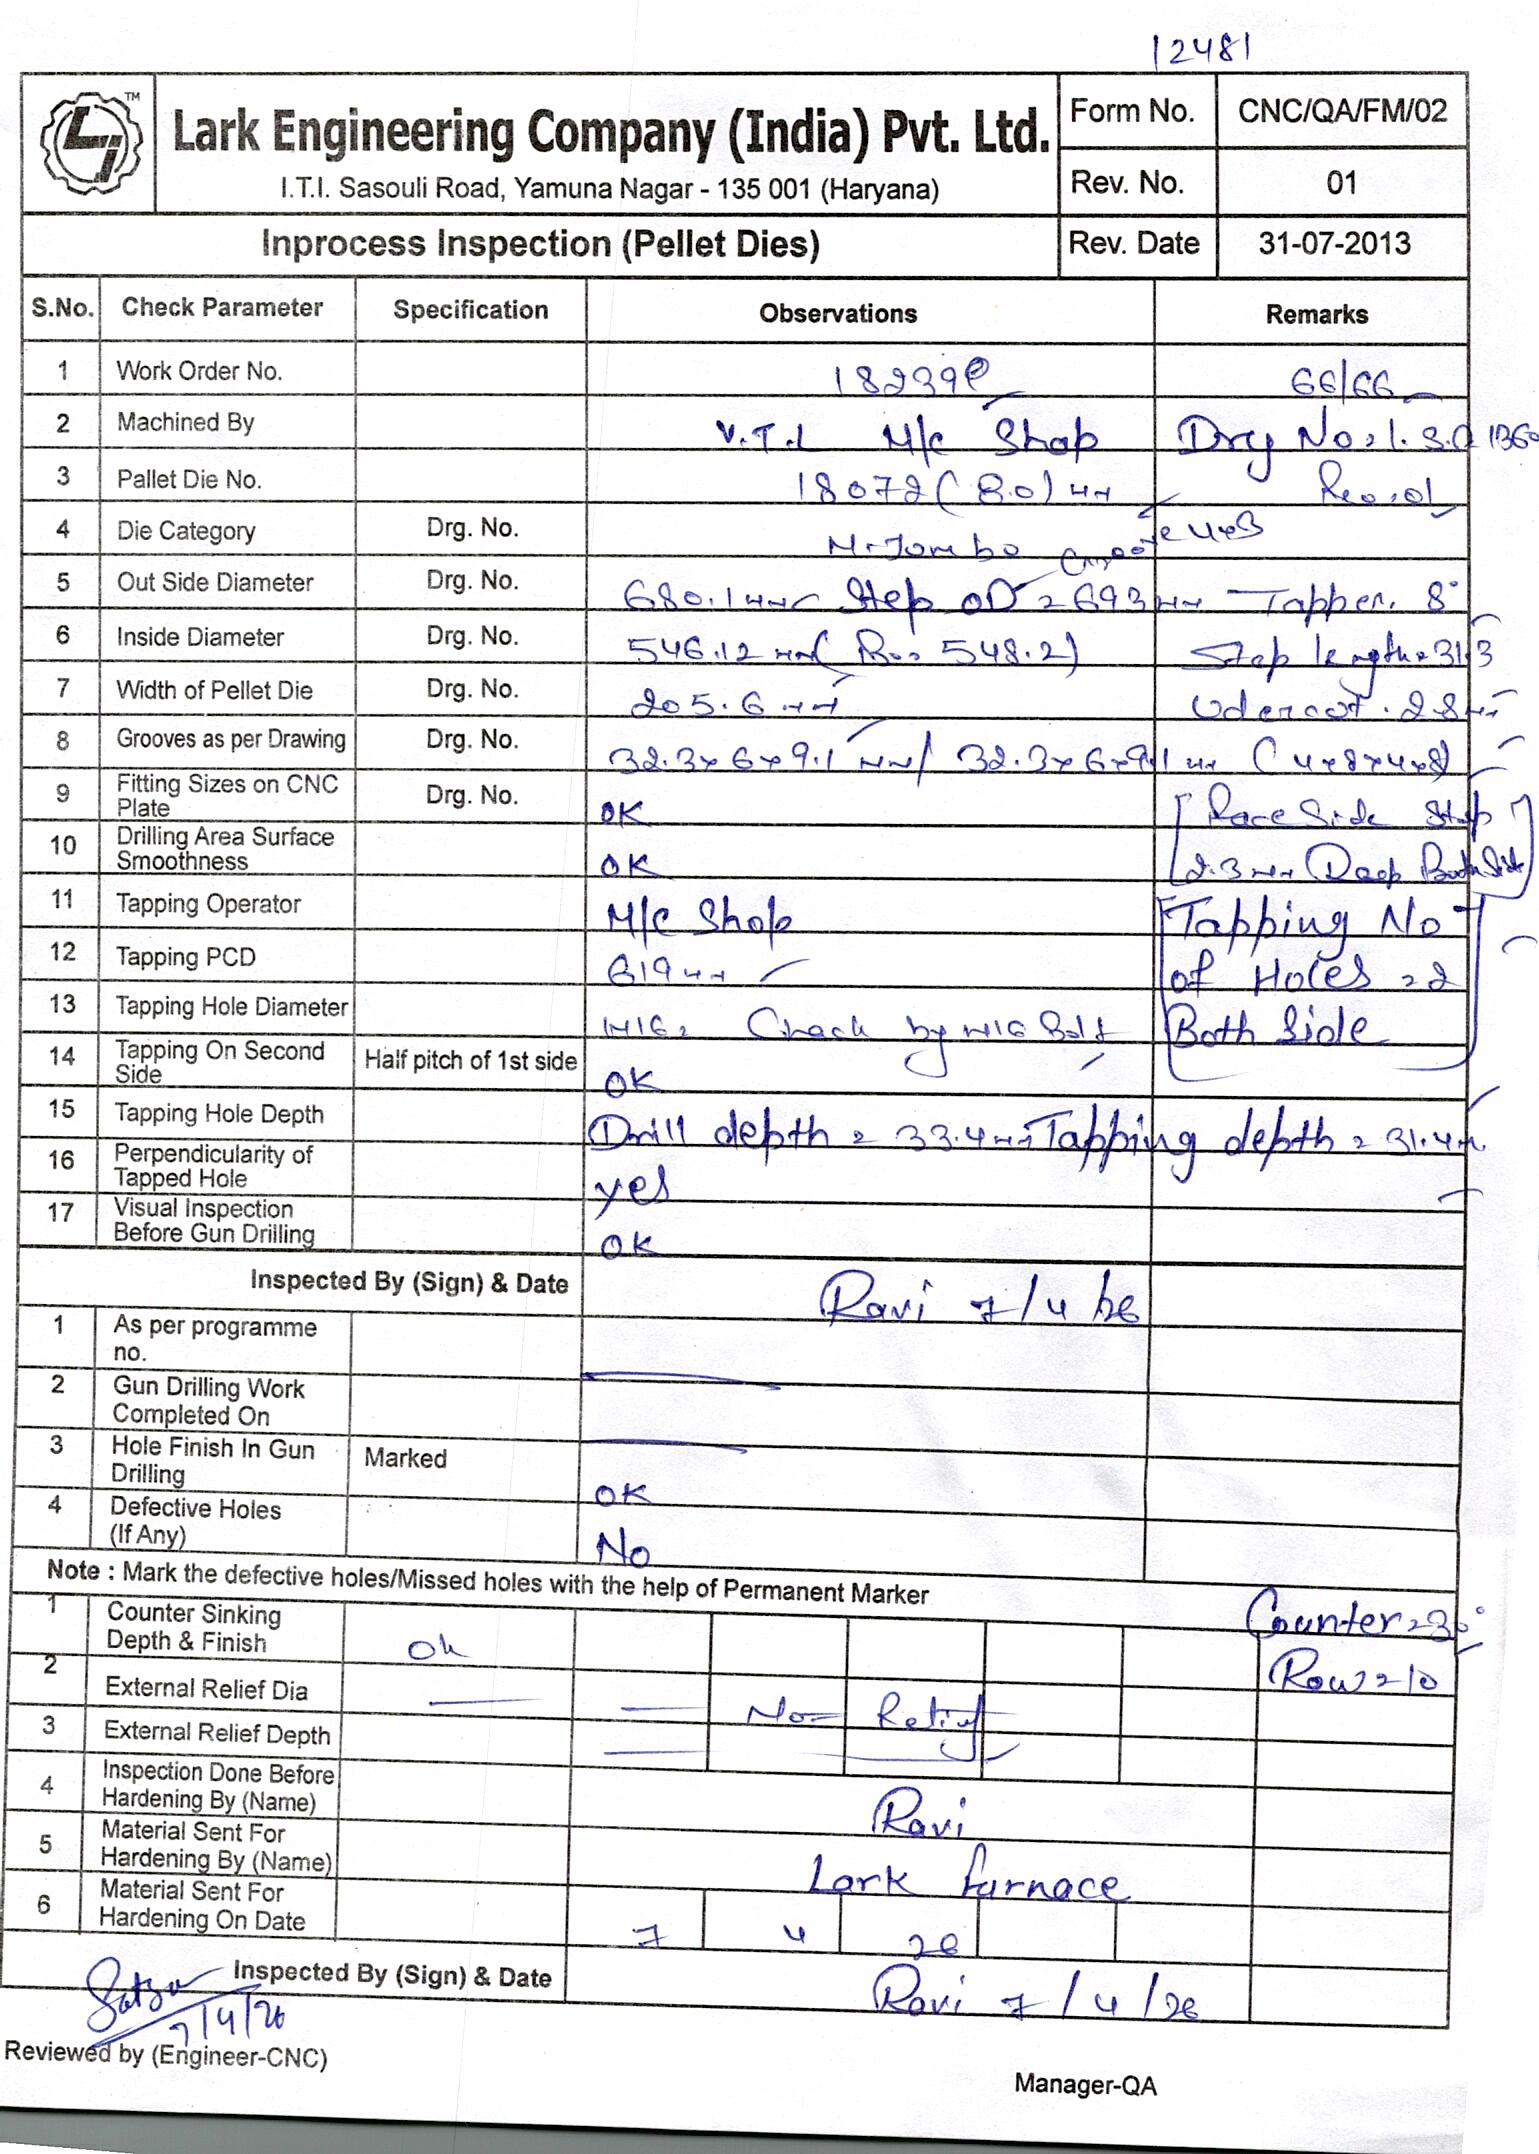 12481
TM
Lark Engineering Company (India) Pvt. Ltd.
I.T.I. Sasouli Road, Yamuna Nagar - 135 001 (Haryana)
Form No. CNC/QA/FM/02
Rev. No. 01
Inprocess Inspection (Pellet Dies) Rev. Date 31-07-2013
S.No. Check Parameter Specification Observations Remarks
1 Work Order No. 66/66
2 Machined By V.T.L M/c Shop
3 Pallet Die No. 18072 (8.0)
4 Die Category Drg. No.
5 Out Side Diameter Drg. No. 680.1 Step OD = 693 Tapper. 8°
6 Inside Diameter Drg. No. 546.12 548.2) Step length = 31.3
7 Width of Pellet Die Drg. No. 205.6
8 Grooves as per Drawing Drg. No. 32.3x6x9.1 / 32.3x6x9.1 (4x8x4x8)
9 Fitting Sizes on CNC Plate Drg. No. OK
10 Drilling Area Surface Smoothness OK 2.3 Deep Both Side
11 Tapping Operator M/c Shop Tapping No
12 Tapping PCD 619 of Holes = 2
13 Tapping Hole Diameter M16 = Check by M16 Bolt Both Side
14 Tapping On Second Side Half pitch of 1st side OK
15 Tapping Hole Depth Drill depth = 33.4 Tapping depth = 31.4
16 Perpendicularity of Tapped Hole yes
17 Visual Inspection Before Gun Drilling OK
Inspected By (Sign) & Date Ravi 7/4/26
1 As per programme no.
2 Gun Drilling Work Completed On
3 Hole Finish In Gun Drilling Marked OK
4 Defective Holes (If Any) No
Note : Mark the defective holes/Missed holes with the help of Permanent Marker
1 Counter Sinking Depth & Finish Ok Counter = 30°
2 External Relief Dia No Relief Row = 10
3 External Relief Depth
4 Inspection Done Before Hardening By (Name) Ravi
5 Material Sent For Hardening By (Name) Lark furnace
6 Material Sent For Hardening On Date 7 4 26
Inspected By (Sign) & Date Ravi 7/4/26
7/4/26
Reviewed by (Engineer-CNC)
Manager-QA